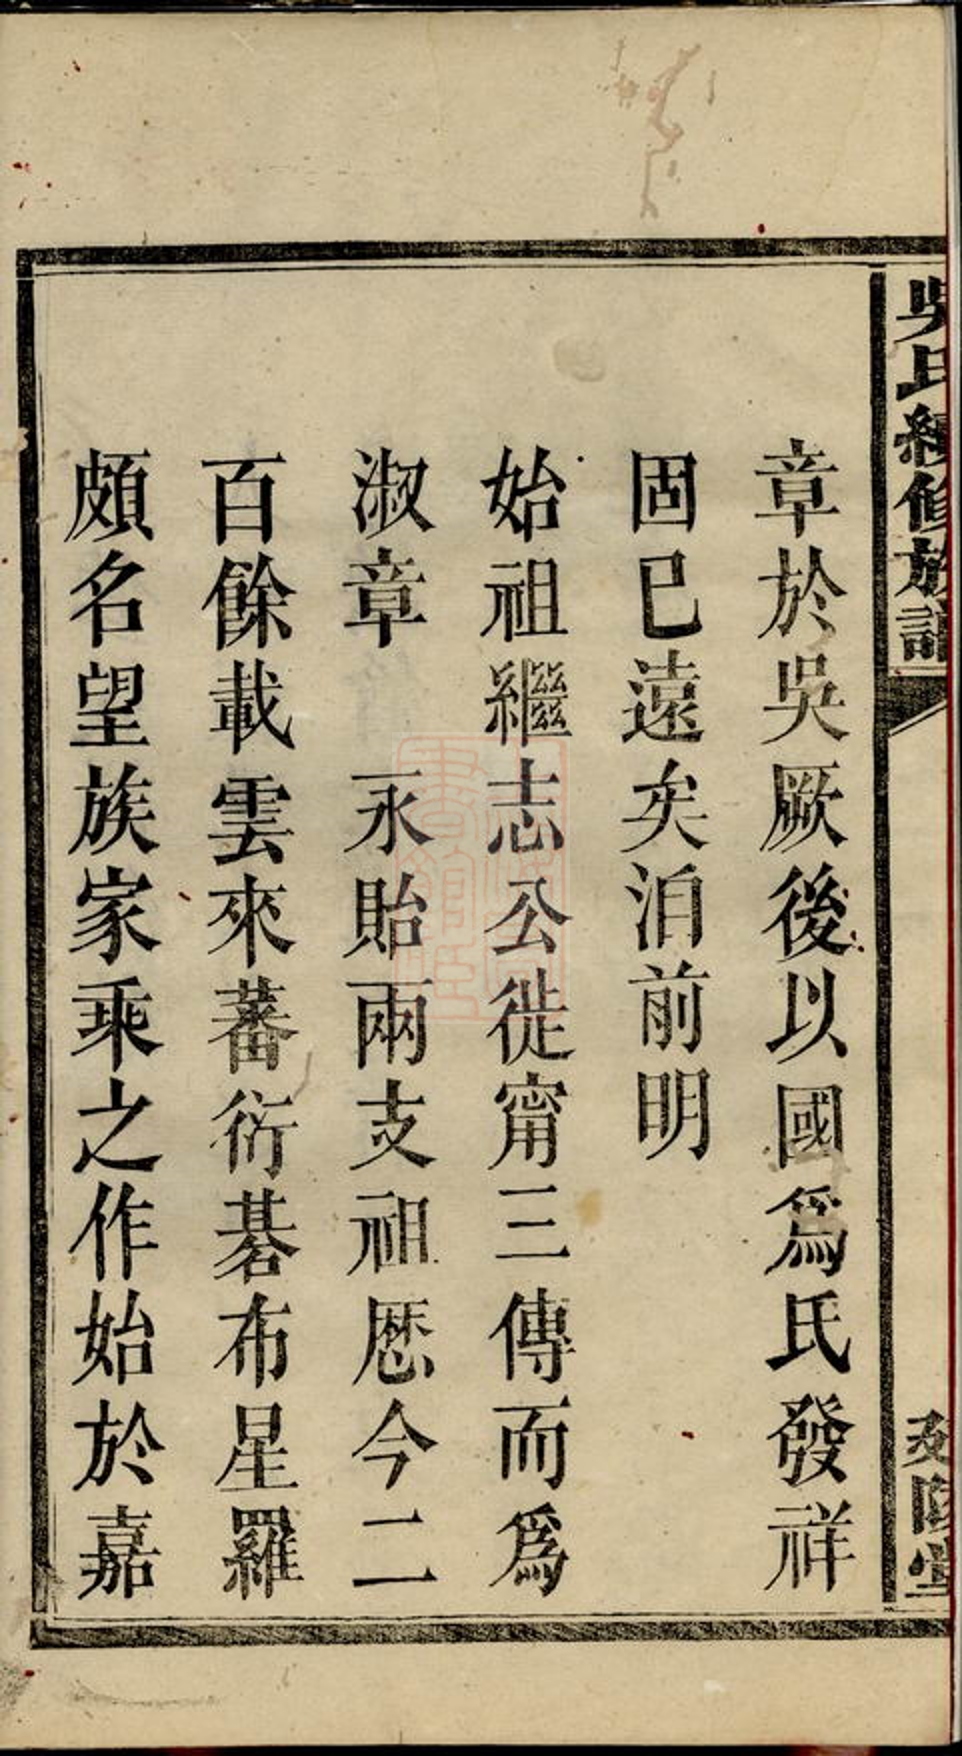 吳氏續修族譜
章於吳厥後以國爲氏發祥
固已遠矣洎前明
始祖繼志公徙甯三傳而爲
淑章 永貽兩支祖厯今二
百餘載雲來蕃衍碁布星羅
頗名望族家乘之作始於嘉
延陵堂